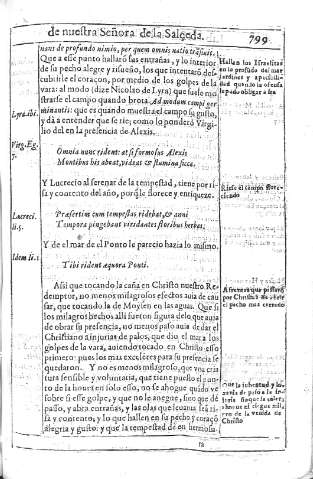 de nuestra Señora de la Salçeda.
799
nans de profundo nimio, per quem omnis natio trãsiuit.
Que a esse punto hallarõ sus entrañas, y lo interior
de su pecho alegre y risueño, los que intentarõ des-
cubrirle el coraçon, por medio de los golpes de la
vara: al modo (dize Nicolao de Lyra) que suele mo-
strarse el campo quando brota. Ad modum campi ger
minantis: que es quando muestra el campo su gusto,
y dà a entender que se rie; como lo ponderò Virgi-
lio del en la presencia de Alexis.
Omnia nunc rident: at si formosus Alexis
Montibus his abeat, videas & flumina sicca.
Y Lucrecio al serenar de la tempestad, tiene por ri-
sa y contento del año, porq̃ le florece y enriqueze.
Præsertim cum tempestas ridebat, & anni
Tempora pingebant viridantes floribus herbas.
Y de el mar de el Ponto le parecio hazia lo mismo.
Tibi rident æquora Ponti.
Assi que tocando la caña en Christo nuestro Re-
demptor, no menos milagrosos efectos auia de cau
sar, que tocando la de Moysen en las aguas. Que si
los milagros hechos alli fueron figura de lo que auia
de obrar su presencia, no menos passo auia de dar el
Christiano a injurias de palos, que dio el mar a los
golpes de la vara, auiendo tocado en Christo esso
primero: pues los mas excelètes para su presencia se
quedaron. Y no es menos milagroso, que vna cria
tura sensible y voluntaria, que tiene puesto el pun-
to de la honra en solo esso, no se ahogue quãdo ve
sobre si esse golpe, y que no le anegue, sino que dè
passo, y abra entrañas, y las olas que leuanta sea ri-
sa y contento; y lo que hallen en su pecho y coraçõ
alegria y gusto: y que la tempestad de en hermosa
ra
Lyra. ibi.
Virg. Eg.
7.
Lucreci.
li.5.
Idem li.1.
Hallan los Israelitas
en lo profundo del mar
jardines y apacibili-
dad quando la ofensa
le pudo obligar a ira
Riese el campo flore-
ciendo
por Christo
el pecho mas
Christo